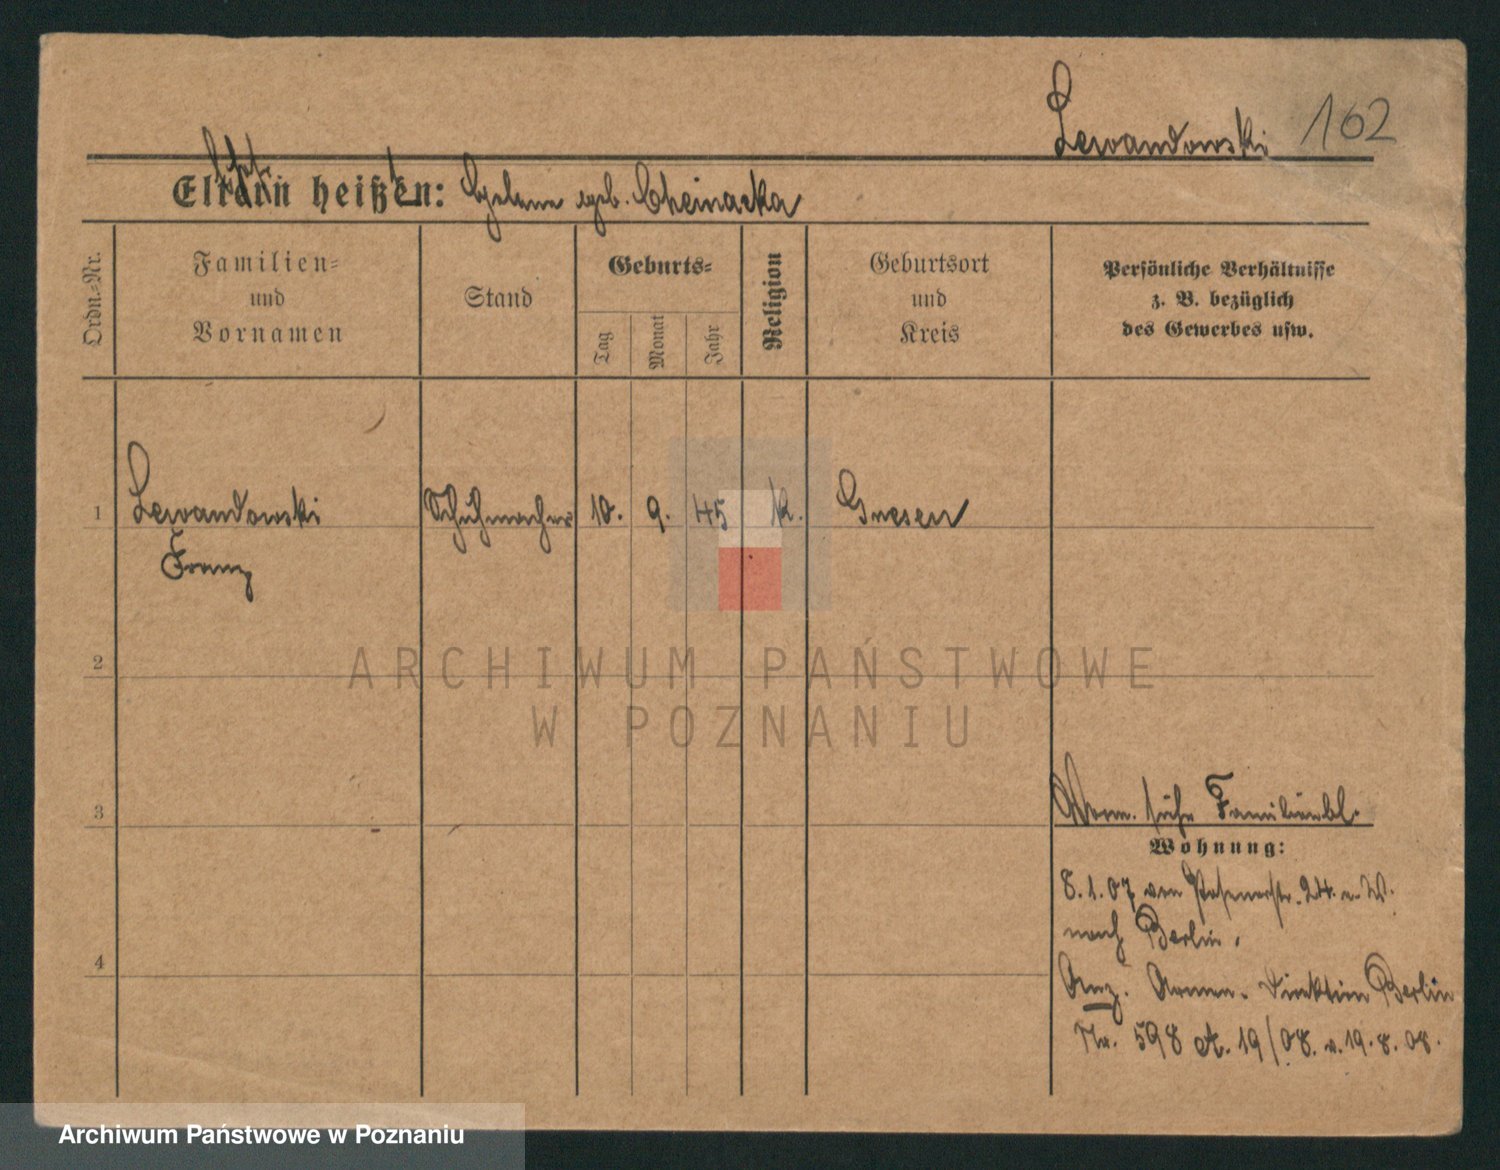 Lewandowski 162
Eltern heißen: Helene geb. Cheinacka
Ordn.-Nr.
Familien-
und
Vornamen
Stand
Geburts-
Tag
Monat
Jahr
Religion
Geburtsort
und
Kreis
Persönliche Verhältnisse
z. B. bezüglich
des Gewerbes usw.
1 Lewandowski Schuhmacher 10. 9. 45 k. Gnesen
Franz
2
ARCHIWUM PAŃSTWOWE
W POZNANIU
3
siehe Familienbl.
Wohnung:
8.1.07 von Posenerstr. 24. n. W.
nach Berlin.
4
Anz. Armen-Direktion Berlin
Nr. 598 A. 19/08. v. 19.8.08.
Archiwum Państwowe w Poznaniu